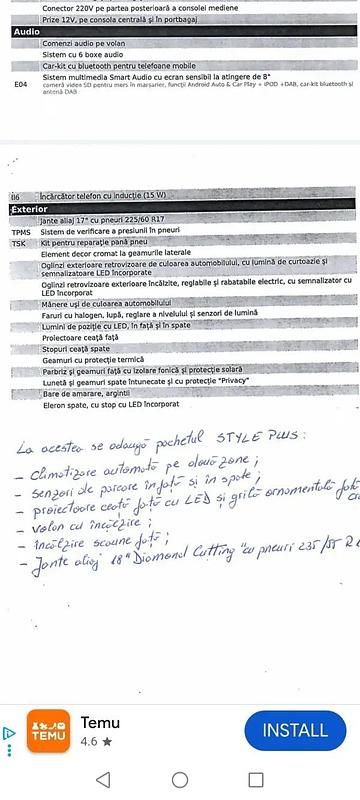 Conector 220V pe partea posterioară a consolei mediene
Prize 12V, pe consola centrală și în portbagaj
Audio
Comenzi audio pe volan
Sistem cu 6 boxe audio
Car-kit cu bluetooth pentru telefoane mobile
Sistem multimedia Smart Audio cu ecran sensibil la atingere de 8"
E04 cameră video SD pentru mers în marșarier, funcții Android Auto & Car Play + iPOD +DAB, car-kit bluetooth și
antenă DAB
II6 Încărcător telefon cu inducție (15 W)
Exterior
Jante aliaj 17" cu pneuri 225/60 R17
TPMS Sistem de verificare a presiunii în pneuri
TSK Kit pentru reparație pană pneu
Element decor cromat la geamurile laterale
Oglinzi exterioare retrovizoare de culoarea automobilului, cu lumină de curtoazie și
semnalizatoare LED încorporate
Oglinzi retrovizoare exterioare încălzite, reglabile și rabatabile electric, cu semnalizator cu
LED încorporat
Mânere uși de culoarea automobilului
Faruri cu halogen, lupă, reglare a nivelului și senzori de lumină
Lumini de poziție cu LED, în față și în spate
Proiectoare ceață față
Stopuri ceață spate
Geamuri cu protecție termică
Parbriz și geamuri față cu izolare fonică și protecție solară
Lunetă și geamuri spate întunecate și cu protecție "Privacy"
Bare de amarare, argintii
Eleron spate, cu stop cu LED încorporat
La acestea se adaugă pachetul STYLE PLUS:
- Climatizare automată pe două zone;
- senzori de parcare în față și în spate;
- proiectoare ceață față cu LED și grilă ornamentală față
- volan cu încălzire;
- încălzire scaune față;
- Jante aliaj 18" "Diamond Cutting" cu pneuri 235/55 R
Temu
TEMU
4.6 ★
INSTALL